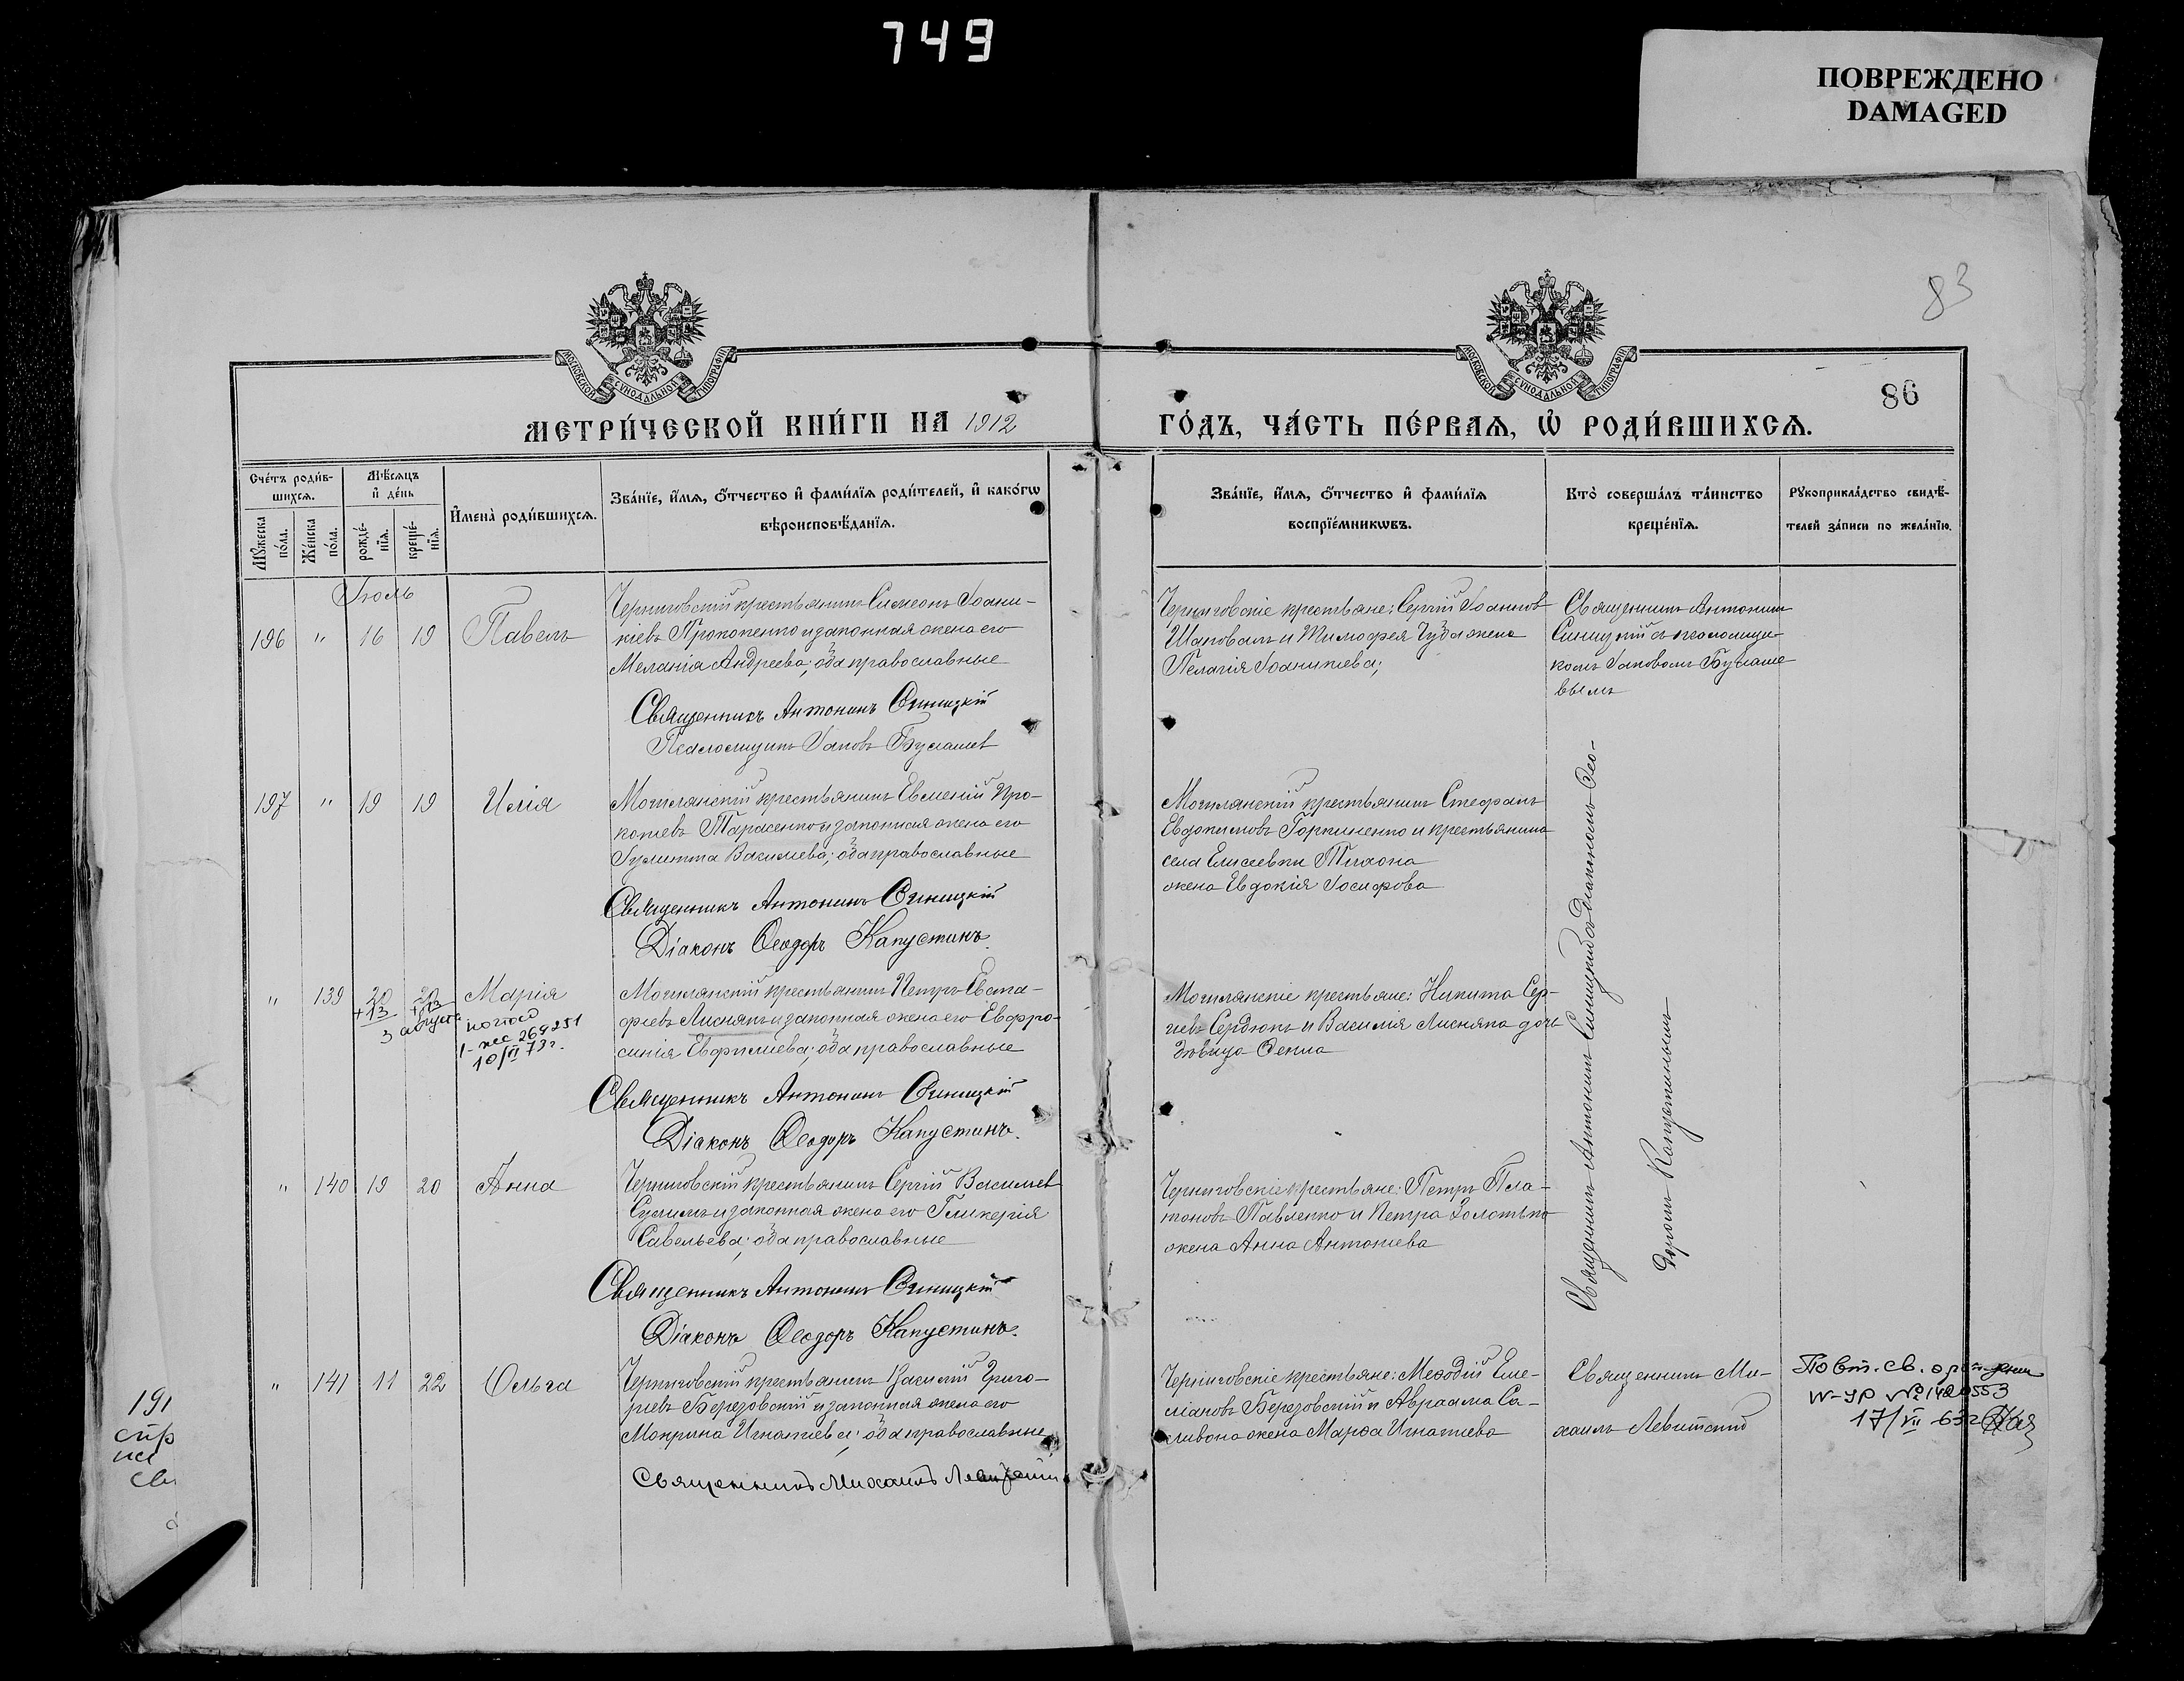 749
ПОВРЕЖДЕНО
DAMAGED
83
86
МОСКОВСКОЙ СѴНОДАЛЬНОЙ ТИПОГРАФІИ
МОСКОВСКОЙ СѴНОДАЛЬНОЙ ТИПОГРАФІИ
МЕТРИ́ЧЕСКОЙ КНИ́ГИ НА 1912
ГО́ДЪ, ЧА́СТЬ ПЕ́РВАѦ, Ѡ҆ РОДИ́ВШИХСѦ.
Сче́тъ роди́в-
шихсѧ.
Мѣ́сѧцъ
и҆ де́нь
Мꙋ́жеска
по́ла.
Же́нска
по́ла.
рожде́-
нїѧ.
креще́-
нїѧ.
И҆мена̀ роди́вшихсѧ.
Зва́нїе, и҆́мѧ, ѻ҆́тчество и҆ фами́лїѧ роди́телей, и҆ како́гѡ
вѣроисповѣ́данїѧ.
Зва́нїе, и҆́мѧ, ѻ҆́тчество и҆ фами́лїѧ
воспрїе́мникѡвъ.
Кто̀ соверша́лъ та́инство
креще́нїѧ.
Рꙋкоприкла́дство свидѣ́-
телей за́писи по жела́нїю.
Іюль
196 " 16 19 Павелъ
Черниговскій крестьянинъ Симеонъ Іоани-
кіевъ Прокопенко и законная жена его
Меланія Андреева; оба православные
Священникъ Антонинъ Синицкій
Псаломщикъ Іаковъ
Черниговскіе крестьяне: Сергій Іоанновъ
Шаповалъ и Тимофея жена
Пелагія
Священникъ Антонинъ
Синицкій съ псаломщи-
комъ Іаковомъ
вымъ
197 " 19 19 Илія
Могилянскій крестьянинъ Евменій Про-
копіевъ Тарасенко и законная жена его
Іулитта Васильева; оба православные
Священникъ Антонинъ Синицкій
Діаконъ Ѳеодоръ Капустинъ.
Могилянскій крестьянинъ Стефанъ
Евдокимовъ Горпиненко и крестьянина
села Елисеевки Тихона
жена Евдокія Іосифова
Священникъ Антонинъ Синицкій съ Діакономъ Ѳео-
доромъ Капустинымъ
" 139 20 20 Марія
+13 +13
3 августа
1-жс 269251
10/II 73г.
Могилянскій крестьянинъ Петръ Евста-
фіевъ Лиснякъ и законная жена его Евфро-
синія Евфиміева; оба православные
Священникъ Антонинъ Синицкій
Діаконъ Ѳеодоръ Капустинъ.
Могилянскіе крестьяне: Никита Сер-
гіевъ Сердюкъ и Василія Лисняка дочь
дѣвица Ѳекла
" 140 19 20 Анна
Черниговскій крестьянинъ Сергій Васильевъ
и законная жена его Гликерія
Савельева; оба православные
Священникъ Антонинъ Синицкій
Діаконъ Ѳеодоръ Капустинъ.
Черниговскіе крестьяне: Петръ Пла-
тоновъ Павленко и Петра Золотько
жена Анна Антоніева
" 141 11 22 Ольга
Черниговскій крестьянинъ Василій Григо-
ріевъ Березовскій и законная жена его
Мокрина Игнатіева; оба православные
Священникъ Михаилъ Левитскій
Черниговскіе крестьяне: Меѳодій Еме-
ліановъ Березовскій и Авраама Са-
ливона жена Марѳа Игнатіева
Священникъ Ми-
хаилъ Левитскій
Повт. св. о
IV-УР №1420553
17/VII-63г
191